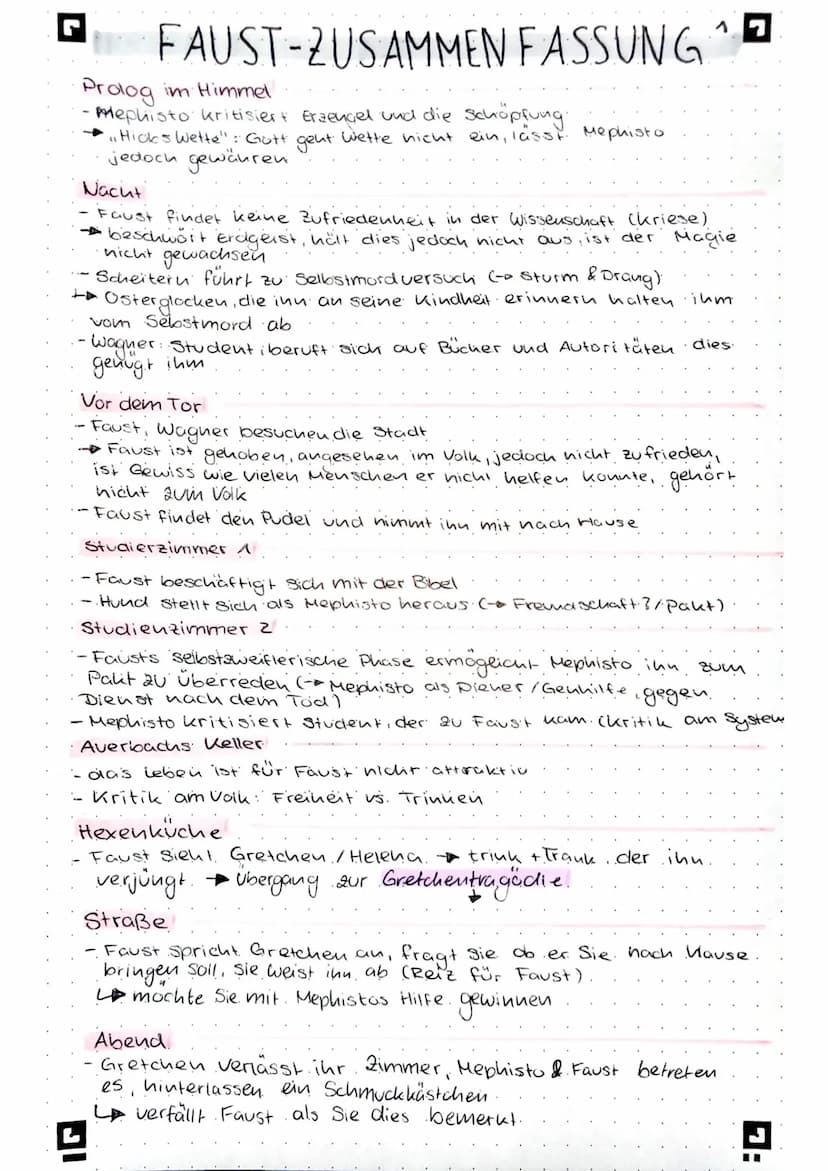 FAUST-ZUSAMMENFASSUNG 1
Prolog im Himmel
- Mephisto kritisiert Erzengel und die Schöpfung
→ "Hiobs Wette": Gott geht Wette nicht ein, lässt Mephisto
jedoch gewähren
Nacht
- Faust findet keine Zufriedenheit in der Wissenschaft (Kriese)
→ beschwört Erdgeist, hält dies jedoch nicht aus, ist der Magie
nicht gewachsen
- Scheitern führt zu Selbstmordversuch (→ Sturm & Drang)
↳ Osterglocken, die inn an seine Kindheit erinnern halten ihm
vom Selbstmord ab
- Wagner: Student, beruft sich auf Bücher und Autoritäten dies
genügt ihm
Vor dem Tor
- Faust, Wagner besuchen die Stadt
→ Faust ist gehoben, angesehen im Volk, jedoch nicht zufrieden,
ist Gewiss wie vielen Menschen er nicht helfen konnte, gehört
nicht zum Volk
- Faust findet den Pudel und nimmt ihn mit nach Hause
Studierzimmer 1
- Faust beschäftigt sich mit der Bibel
- Hund stellt sich als Mephisto heraus (→ Freundschaft?/Pakt)
Studienzimmer 2
- Fausts selbstzweiflerische Phase ermöglicht Mephisto ihn zum
Pakt zu überreden (→ Mephisto als Diener/Gehilfe, gegen
Dienst nach dem Tod)
- Mephisto kritisiert Student, der zu Faust kam (Kritik am System
Auerbachs Keller
- das Leben ist für Faust nicht attraktiv
- Kritik am Volk: Freiheit vs. Trinken
Hexenküche
- Faust sieht Gretchen/Helena → trinkt Trank, der ihn
verjüngt → Übergang zur Gretchentragödie
Straße
- Faust spricht Gretchen an, fragt sie ob er Sie nach Hause
bringen soll, sie weist ihn ab (Reiz für Faust)
↳ möchte Sie mit Mephistos Hilfe gewinnen
Abend
- Gretchen verlässt ihr Zimmer, Mephisto & Faust betreten
es, hinterlassen ein Schmuckkästchen
↳ verfällt Faust als Sie dies bemerkt